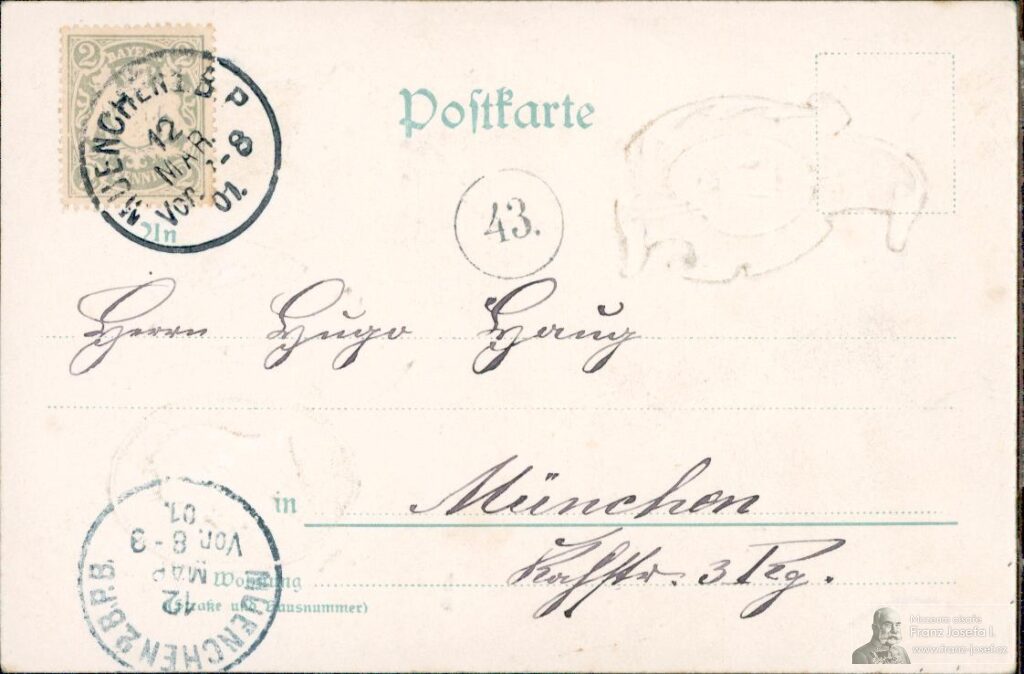 2 BAYERN 2
MUENCHEN 1. B. P
12
MAR.
VOR. 7-8
01.
Postkarte
43.
An
Herrn Hugo Haug
in München
Wohnung
3 Rg.
(Straße und Hausnummer)
MUENCHEN 2 B.P.B.
12
MAR
VOR. 8-9
01.
Muzeum císaře
Franz Josefa I.
www.franz-josef.cz